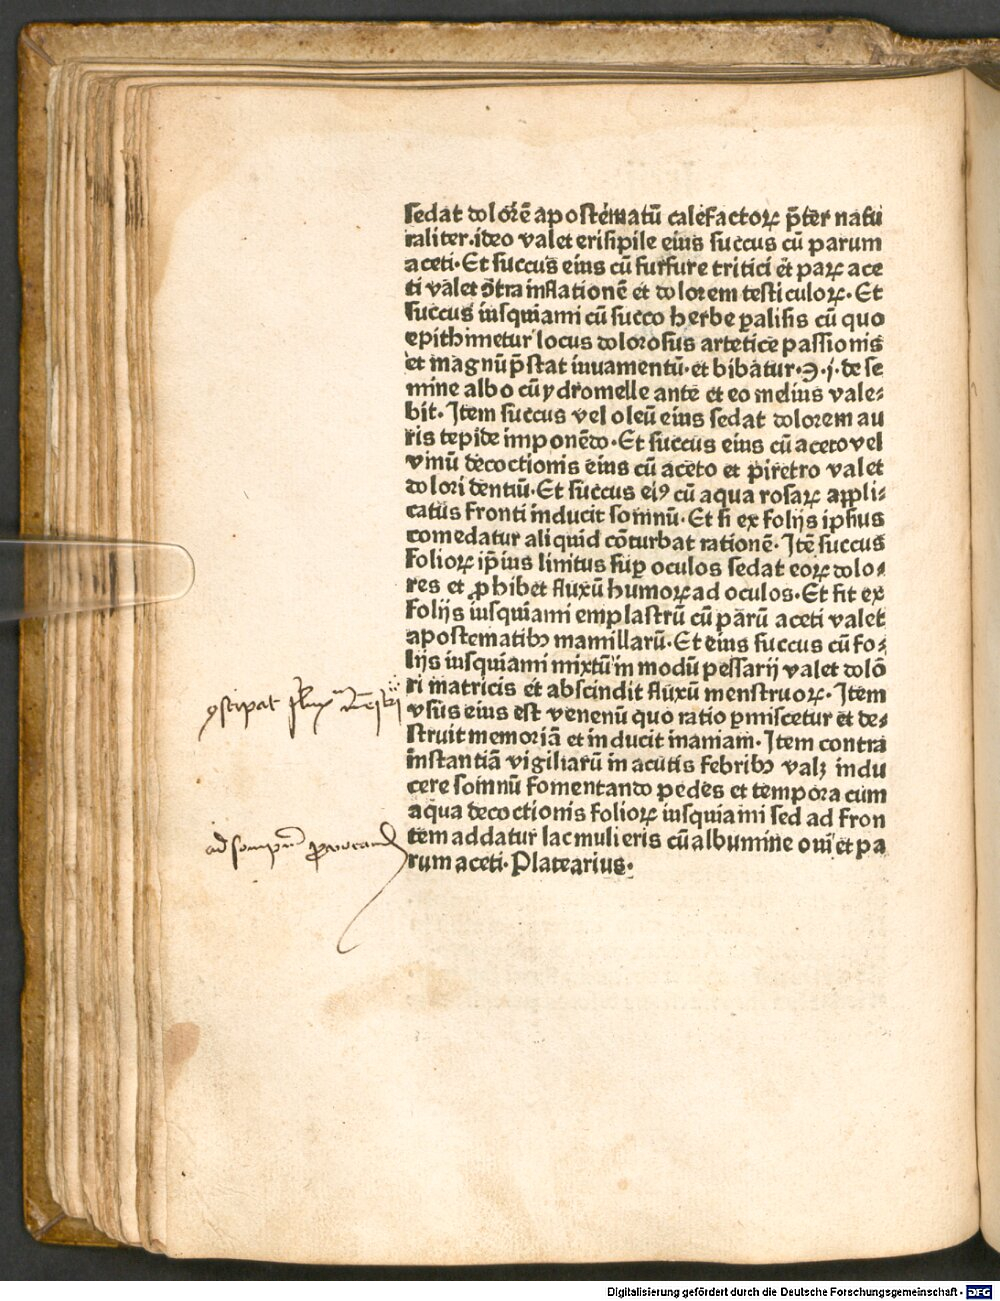 sedat dolorē apostematū calefactoꝝ p̄ter natu
raliter·ideo valet erisipile eius succus cū parum
aceti·Et succus eius cū furfure tritici et paꝝ ace
ti valet ɔ̄tra inflationē et dolorem testiculoꝝ·Et
succus iusquiami cū succo herbe ꝑalisis cū quo
epithimetur locus dolorosus artetice passionis
et magnū p̄stat iuuamentū·et bibatur·℈·j·de se
mine albo cū ydromelle ante et eo melius vale⸗
bit·Item succus vel oleū eius sedat dolorem au
ris tepide imponēdo·Et succus eius cū aceto vel
vinū decoctionis eius cū aceto et piretro valet
dolori dentiū·Et succus eiꝰ cū aqua rosaꝝ appli⸗
catus fronti inducit somnū·Et si ex folijs ipsius
comedatur aliquid cōturbat rationē·Itē succus
folioꝝ ip̄ius linitus sup̱ oculos sedat eoꝝ dolo⸗
res et ꝓhibet fluxū humoꝝ ad oculos·Et fit ex
folijs iusquiami emplastrū cū parū aceti valet
apostematibꝫ mamillarū·Et eius succus cū fo⸗
lijs iusquiami mixtū in modū pessarij valet dolō
ri matricis et abscindit fluxū menstruoꝝ·Item
vsus eius est venenū quo ratio ꝑmiscetur et de⸗
struit memoriā et inducit inaniam·Item contra
instantiā vigiliarū in acutis febribꝫ valꝫ indu
cere somnū fomentando pedes et tempora cum
aqua decoctionis folioꝝ iusquiami sed ad fron
tem addatur lac mulieris cū albumine oui et pa
rum aceti·Platearius·
ꝯstipat
ad sompnū ꝓuocand
Digitalisierung gefördert durch die Deutsche Forschungsgemeinschaft - DFG